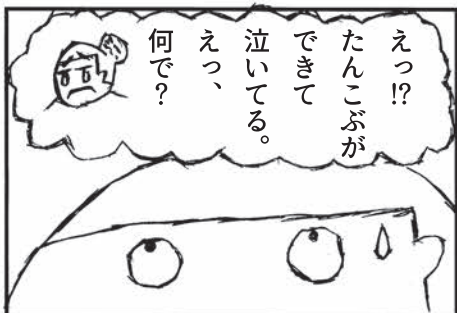 えっ!?
たんこぶが
できて
泣いてる。
えっ、
何で?